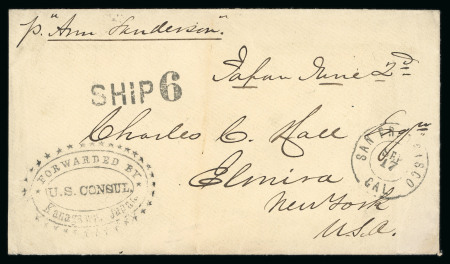 p. "Ann Sanderson".
Japan June 2d
SHIP 6
Charles C. Hall Esqre
Elmira
New York
U.S.A.
FORWARDED BY
U.S. CONSUL,
Kanagawa, Japan.
SAN FRANCISCO
17
CAL